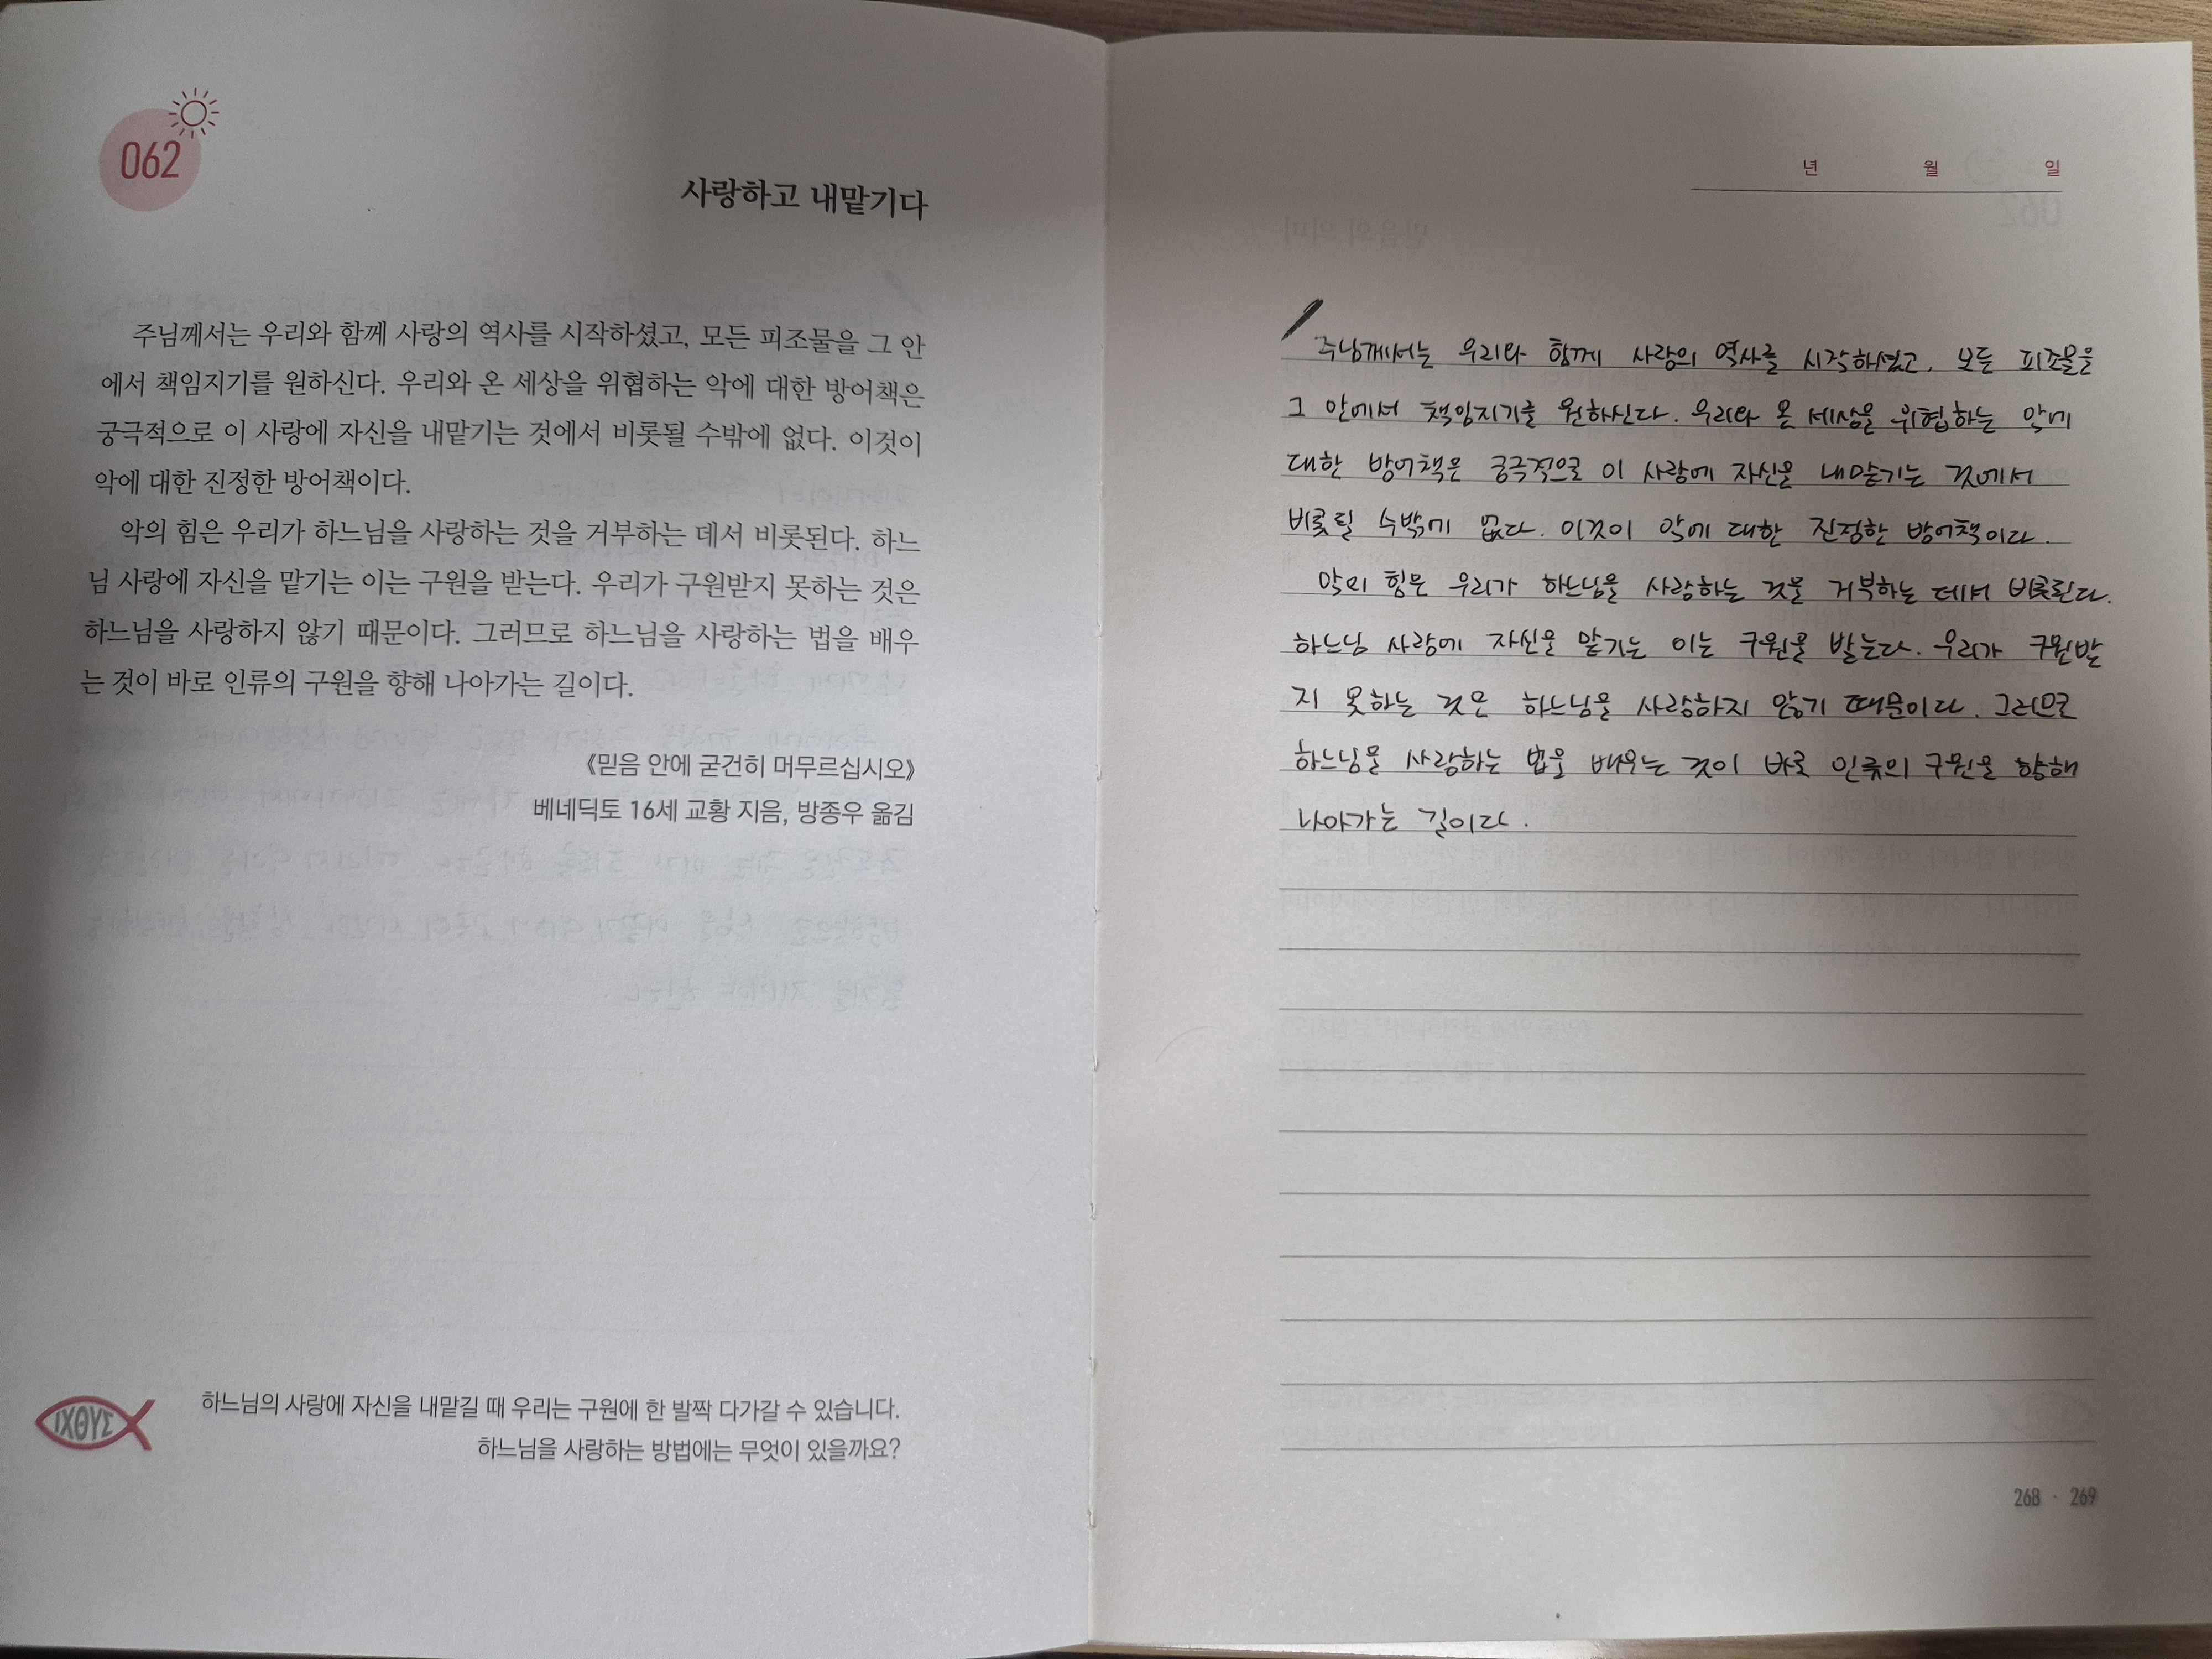 062
사랑하고 내맡기다
주님께서는 우리와 함께 사랑의 역사를 시작하셨고, 모든 피조물을 그 안
에서 책임지기를 원하신다. 우리와 온 세상을 위협하는 악에 대한 방어책은
궁극적으로 이 사랑에 자신을 내맡기는 것에서 비롯될 수밖에 없다. 이것이
악에 대한 진정한 방어책이다.
악의 힘은 우리가 하느님을 사랑하는 것을 거부하는 데서 비롯된다. 하느
님 사랑에 자신을 맡기는 이는 구원을 받는다. 우리가 구원받지 못하는 것은
하느님을 사랑하지 않기 때문이다. 그러므로 하느님을 사랑하는 법을 배우
는 것이 바로 인류의 구원을 향해 나아가는 길이다.
《믿음 안에 굳건히 머무르십시오》
베네딕토 16세 교황 지음, 방종우 옮김
ΙΧΘΥΣ
하느님의 사랑에 자신을 내맡길 때 우리는 구원에 한 발짝 다가갈 수 있습니다.
하느님을 사랑하는 방법에는 무엇이 있을까요?
년 월 일
주님께서는 우리와 함께 사랑의 역사를 시작하셨고, 모든 피조물을
그 안에서 책임지기를 원하신다. 우리와 온 세상을 위협하는 악에
대한 방어책은 궁극적으로 이 사랑에 자신을 내맡기는 것에서
비롯될 수밖에 없다. 이것이 악에 대한 진정한 방어책이다.
악의 힘은 우리가 하느님을 사랑하는 것을 거부하는 데서 비롯된다.
하느님 사랑에 자신을 맡기는 이는 구원을 받는다. 우리가 구원받
지 못하는 것은 하느님을 사랑하지 않기 때문이다. 그러므로
하느님을 사랑하는 법을 배우는 것이 바로 인류의 구원을 향해
나아가는 길이다.
268 · 269